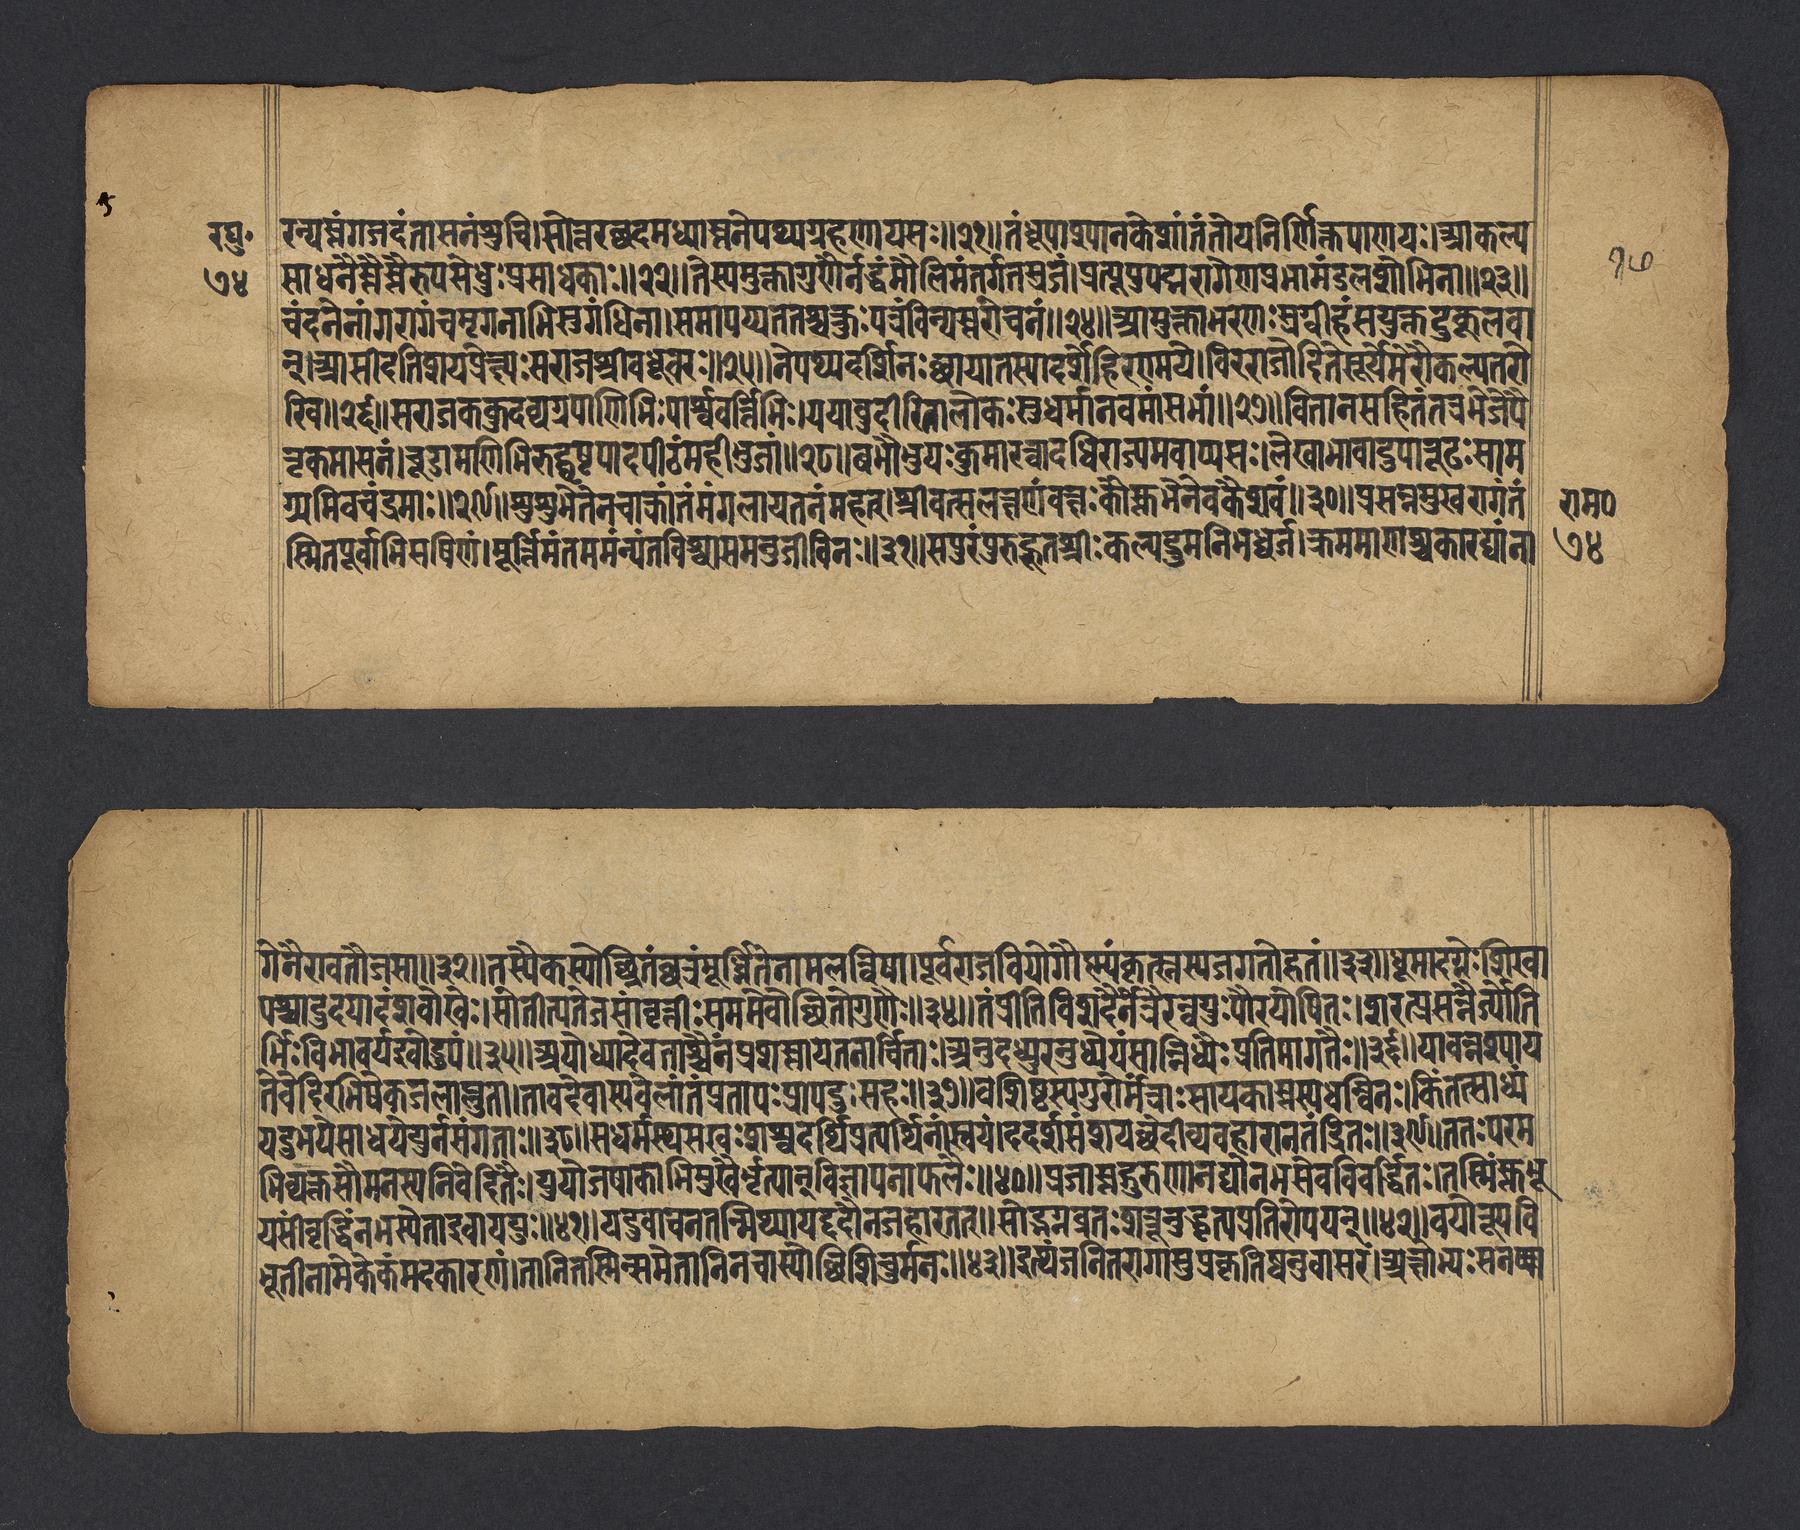 रघु॰
७४
रन्यस्तंगजदंतासनंशुचि।सोत्तरछदमध्यास्तनेपथ्यग्रहणायसः॥२१॥तंधूपाश्यानकेशांतंतोयनिर्णिक्तपाणयः।आकल्प
साधनैस्तैस्तैरुपसेधुःप्रसाधकाः॥२२॥तेस्यमुक्तागुणोर्नद्धंमौलिमंतर्गतस्रजं।प्रत्यूपुपद्मरागेणप्रभामंडलशोभिना॥२३॥
चंदनेनांगरागंचमृगनाभिसुगंधिना।समापय्यततश्चक्रुःपत्रंविन्यस्तरोचनं॥२४॥आमुक्ताभरणःस्रग्वीहंसयुक्तदुकूलवा
न्।आसीदतिशयप्रेक्ष्यःसराजश्रीवधूवरः॥२५॥नेपथ्यदर्शिनःछायातस्यादर्शेहिरण्मये।विरराजोदितेसूर्येमेरौकल्पतरो
रिव॥२६॥सराजककुदव्यग्रपाणिभिःपार्श्ववर्त्तिभिः।ययावुदीरितालोकःसुधर्मानवमांसभां॥२७॥वितानसहितंतत्रभेजेपै
तृकमासनं।चूडामणिभिरुद्घृष्टपादपीठंमहीभुजां॥२८॥बभौभुयःकुमारत्वादधिराज्यमवाप्यसः।लेखाभावादुपारूढःसाम
ग्र्यमिवचंद्रमाः॥२९॥शुशुभेतेनचाक्रांतंमंगलायतनंमहत्।श्रीवत्सलक्षणंवक्षःकौस्तभेनेवकैशवं॥३०॥प्रसन्नमुखरागंतं
स्मितपूर्वाभिभाषिणं।मूर्त्तिमंतममंन्यंतविश्वासमनुजीविनः॥३१॥सपुरंपुरुहूतश्रीःकल्पद्रुमनिभध्वजं।क्रममाणश्चकारद्यांना
राम०
७४
गेनैरावतौजसा॥३२॥तस्यैकस्योछ्रितंछत्रंमूर्ध्नितेनामलत्विषा।पूर्वराजवियोगौष्म्यंकृत्स्नस्यजगतोहृतं॥३३॥धूमादग्नेःशिखा
पश्चादुदयादंशवोरवेः।सोतीत्यतेजसांवृत्तीःसममेवोत्थितोगुणैः॥३४॥तंप्रीतिविशदैर्नेत्रैरन्वयुःपौरयोषितः।शरत्प्रसन्नैर्ज्योति
र्भिःविभावर्यइवोडुपं॥३५॥अयोध्यादेवताश्चैनंप्रशस्तायतनार्चिताः।अनुदध्युरनुध्येयंसान्निध्यैःप्रतिमागतैः॥३६॥यावन्नश्पाय
तेवेदिरभिषेकजलाप्लुता।तावदेवास्यवेलांतंप्रतापःप्रापदुःसहः॥३७॥वशिष्टस्यगुरोर्मंत्राःसायकास्तस्यधन्विनः।किंतत्साध्यं
यदुभयेसाधयेयुर्नसंगताः॥३८॥सधर्मस्थसखःशश्वदर्थिप्रत्यर्थिनांस्वयं।ददर्शसंशयछेदीव्यवहारानतंद्रितः॥३९॥ततःपरम
भिव्यक्तसौमनस्यनिवेदितैः।युयोजपाकाभिमुखैर्भृत्यान्विज्ञापनाफलैः॥४०॥प्रजास्तद्गुरुणानद्योनभसेवविवर्द्धितः।तस्मिंस्तुभू
यसींवृद्धिंनभस्येताइवाययुः॥४१॥यदुवाचनतन्मिथ्यायद्ददौनजहारतत्।सोद्भग्नव्रतःशत्रूनुद्धृत्यप्रतिरोपयन्॥४२॥वयोरूपवि
भूतीनामेकैकंमदकारणं।तानितस्मिन्समेतानिनचास्योत्थिशिचुर्मनः॥४३॥इत्थंजनितरागासुप्रकृतिष्वनुवासरं।अक्षोभ्यःसनवो